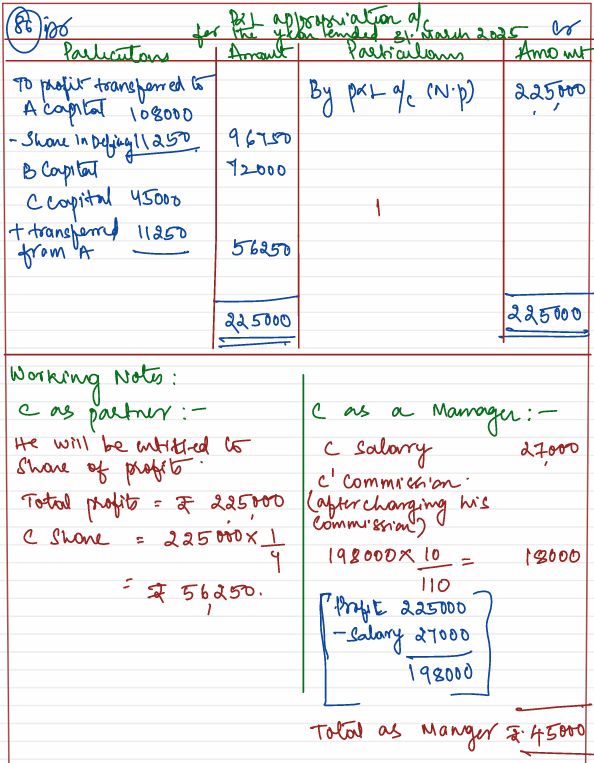 86 Dr P&L appropriation a/c Cr
for the year ended 31 March 2025
Particulars Amount Particulars Amount
To profit transferred to By P&L a/c (N.P) 225000
A Capital 108000
- Share in Defiency 11250 96750
B Capital 72000
C Capital 45000
+ transferred 11250
from A 56250
225000 225000
Working Notes:
C as partner :-
He will be entitled to
Share of profits.
Total profits = ₹ 225000
C Share = 225000 × 1/4
= ₹ 56250.
C as a Manager :-
C Salary 27000
C' Commission.
(after charging his
Commission)
198000 × 10/110 = 18000
[Profit 225000
- Salary 27000
198000]
Total as Manger ₹. 45000